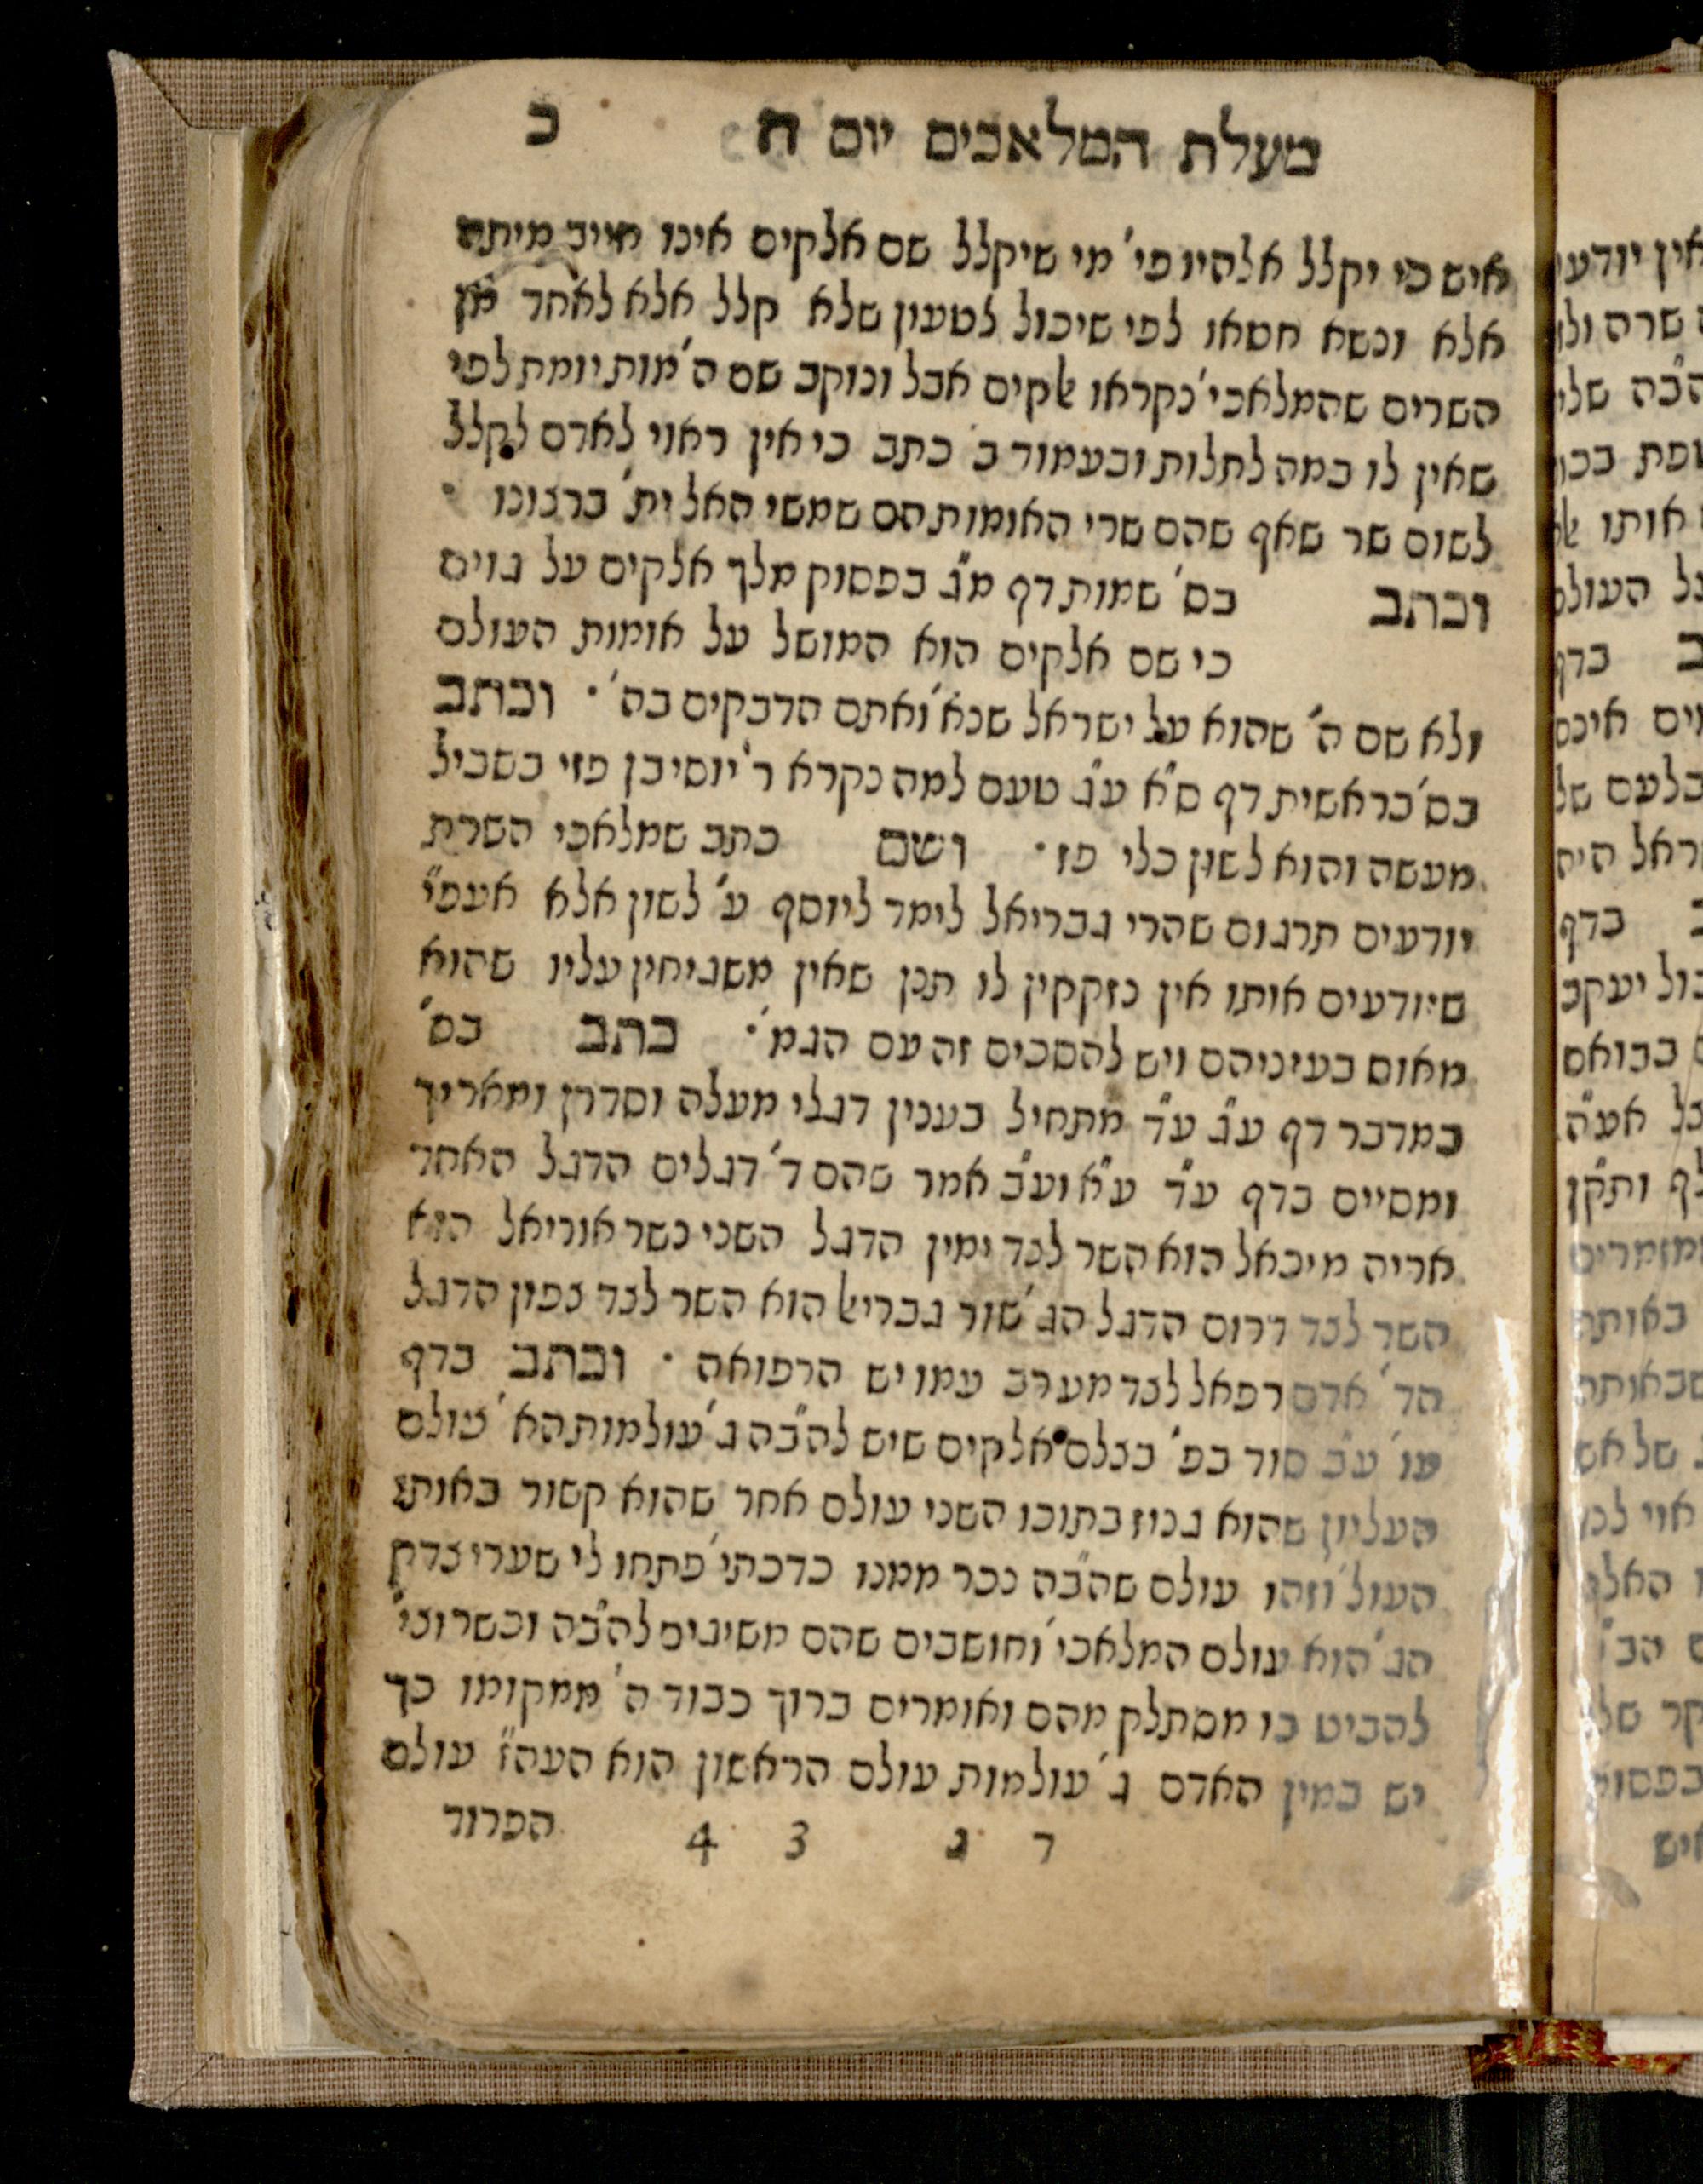 מעלת המלאכים יום ח כ
איש כי יקלל אלהיו פי' מי שיקלל שם אלקים אינו חייב מיתה
אלא ונשא חטאו לפי שיכול לטעון שלא קלל אלא לאחד מן
השרים שהמלאכי' נקראו אלקים אבל ונוקב שם ה' מות יומת לפי
שאין לו במה לתלות ובעמוד ב' כתב כי אין ראוי לאדם לקלל
לשום שר שאף שהם שרי האומות הם שמשי האל ית' ברצונו
וכתב בס' שמות דף מ"ג בפסוק מלך אלקים על גוים
כי שם אלקים הוא המושל על אומות העולם
ולא שם ה' שהוא על ישראל שנא' ואתם הדבקים בה' · וכתב
בס' בראשית דף ס"א ע"ג טעם למה נקרא ר' יוסי בן פזי בשביל
מעשה והוא לשון כלי פז · ושם כתב שמלאכי השרת
יודעים תרגום שהרי גבריאל לימד ליוסף ע' לשון אלא אעפ"י
שיודעים אותו אין נזקקין לו תכן שאין משגיחין עליו שהוא
מאוס בעיניהם ויש להסכים זה עם הגמ' · כתב בס'
במדבר דף ע"ג ע"ד מתחיל בענין דגלי מעלה וסדרן ומאריך
ומסיים בדף ע"ד ע"א וע"ב אמר שהם ד' דגלים הדגל האחד
אריה מיכאל הוא השר לצד ימין הדגל השני נשר אוריאל הוא
השר לצד דרום הדגל הג' שור גבריאל הוא השר לצד צפון הדגל
הד' אדם רפאל לצד מערב עמו יש הרפואה · וכתב בדף
עו' ע"ב סוד בפ' בצלם אלקים שיש להב"ה ג' עולמות הא' עולם
העליון שהוא גנוז בתוכו השני עולם אחר שהוא קשור באותו
העול' וזהו עולם שהב"ה נכר ממנו כדכתי' פתחו לי שערי צדק
הג' הוא עולם המלאכי' וחושבים שהם משיגים להב"ה וכשרוצי'
להביט בו מסתלק מהם ואומרים ברוך כבוד ה' ממקומו כך
יש במין האדם ג' עולמות עולם הראשון הוא העה"ז עולם
ד ג 3 4 הפרוד